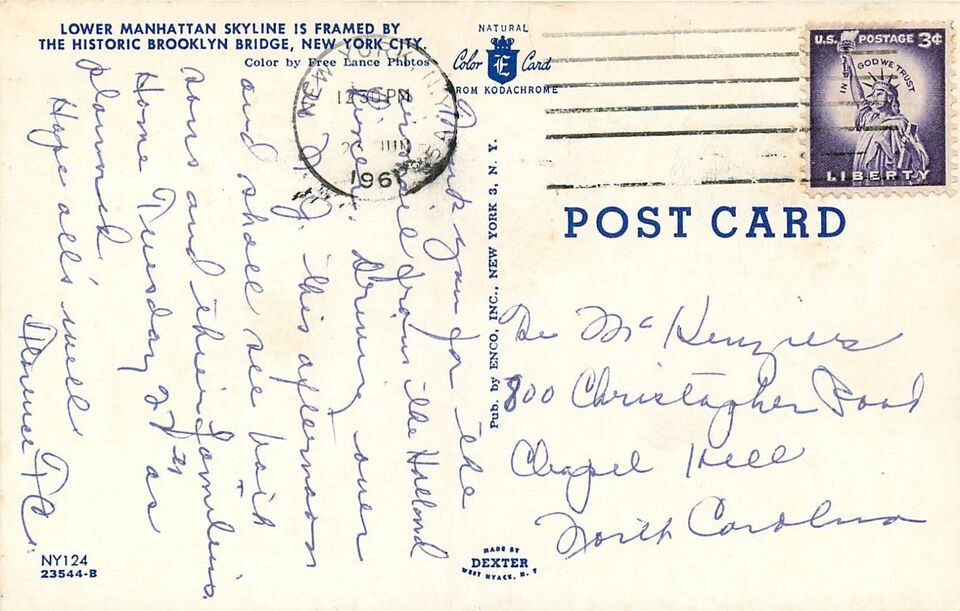 LOWER MANHATTAN SKYLINE IS FRAMED BY
THE HISTORIC BROOKLYN BRIDGE, NEW YORK CITY.
Color by Free Lance Photos
NATURAL
Color E Card
FROM KODACHROME
NEW YORK, N.Y.
12 30 PM
JUN
196
U.S. POSTAGE 3¢
IN GOD WE TRUST
LIBERTY
POST CARD
Pub. by ENCO, INC., NEW YORK 3, N. Y.
Thank you for the
from the Holland
Driving over
N. J. this afternoon
and shall see both
sons and their families.
Home Tuesday 27th as
planned.
Hope all's well
Florence
The McKenzies
800 Christopher Road
Chapel Hill
North Carolina
NY124
23544-B
MADE BY
DEXTER
WEST NYACK, N. Y.